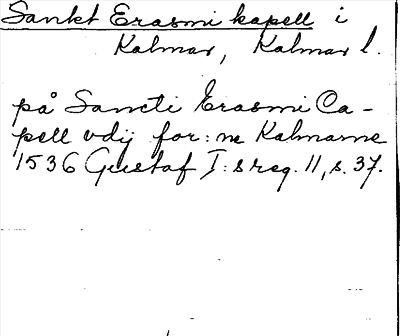 Sankt Erasmi kapell i
Kalmar, Kalmar l.
på Sancti Erasmi Ca-
pell vdij for:ne Kalmarne
1536 Gustaf I:s reg. 11, s. 37.